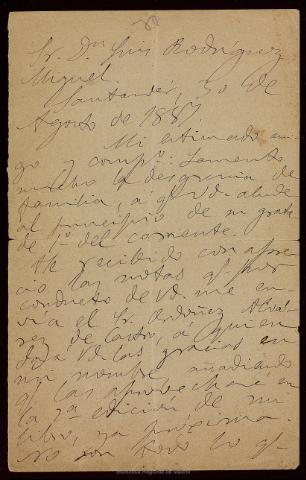 Sr. Dn Luis Rodríguez
Miguel.
Santander, 30 de
Agosto de 1887
Mi estimado ami-
go y compº: Lamento
mucho la desgracia de
familia, a qe Vd. alude
al principio de su grata
de 1º del corriente.
He recibido con apre-
cio las notas qe por
conducto de Vd. me en-
vía el Sr. Ordóñez Alvar-
ez de Castro, a quien
dará Vd. las gracias en
mi nombre, añadiendo
qe las aprovecharé en
la 2ª edición de mi
libro, ya próxima.
No son todo lo qe
Biblioteca Regional de Madrid